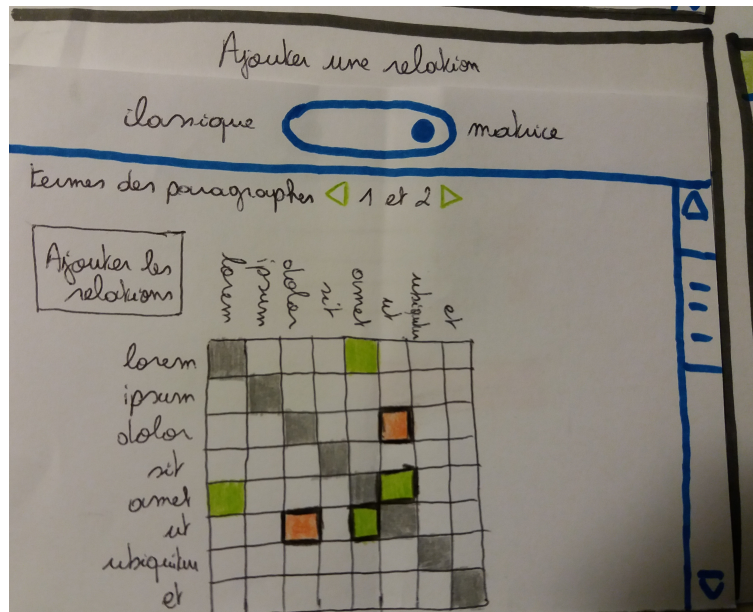 Ajouter une relation
classique matrice
termes des paragraphes 1 et 2
Ajouter les
relations
lorem ipsum dolor sit amet ut ubiquitu et
lorem
ipsum
dolor
sit
amet
ut
ubiquitu
et